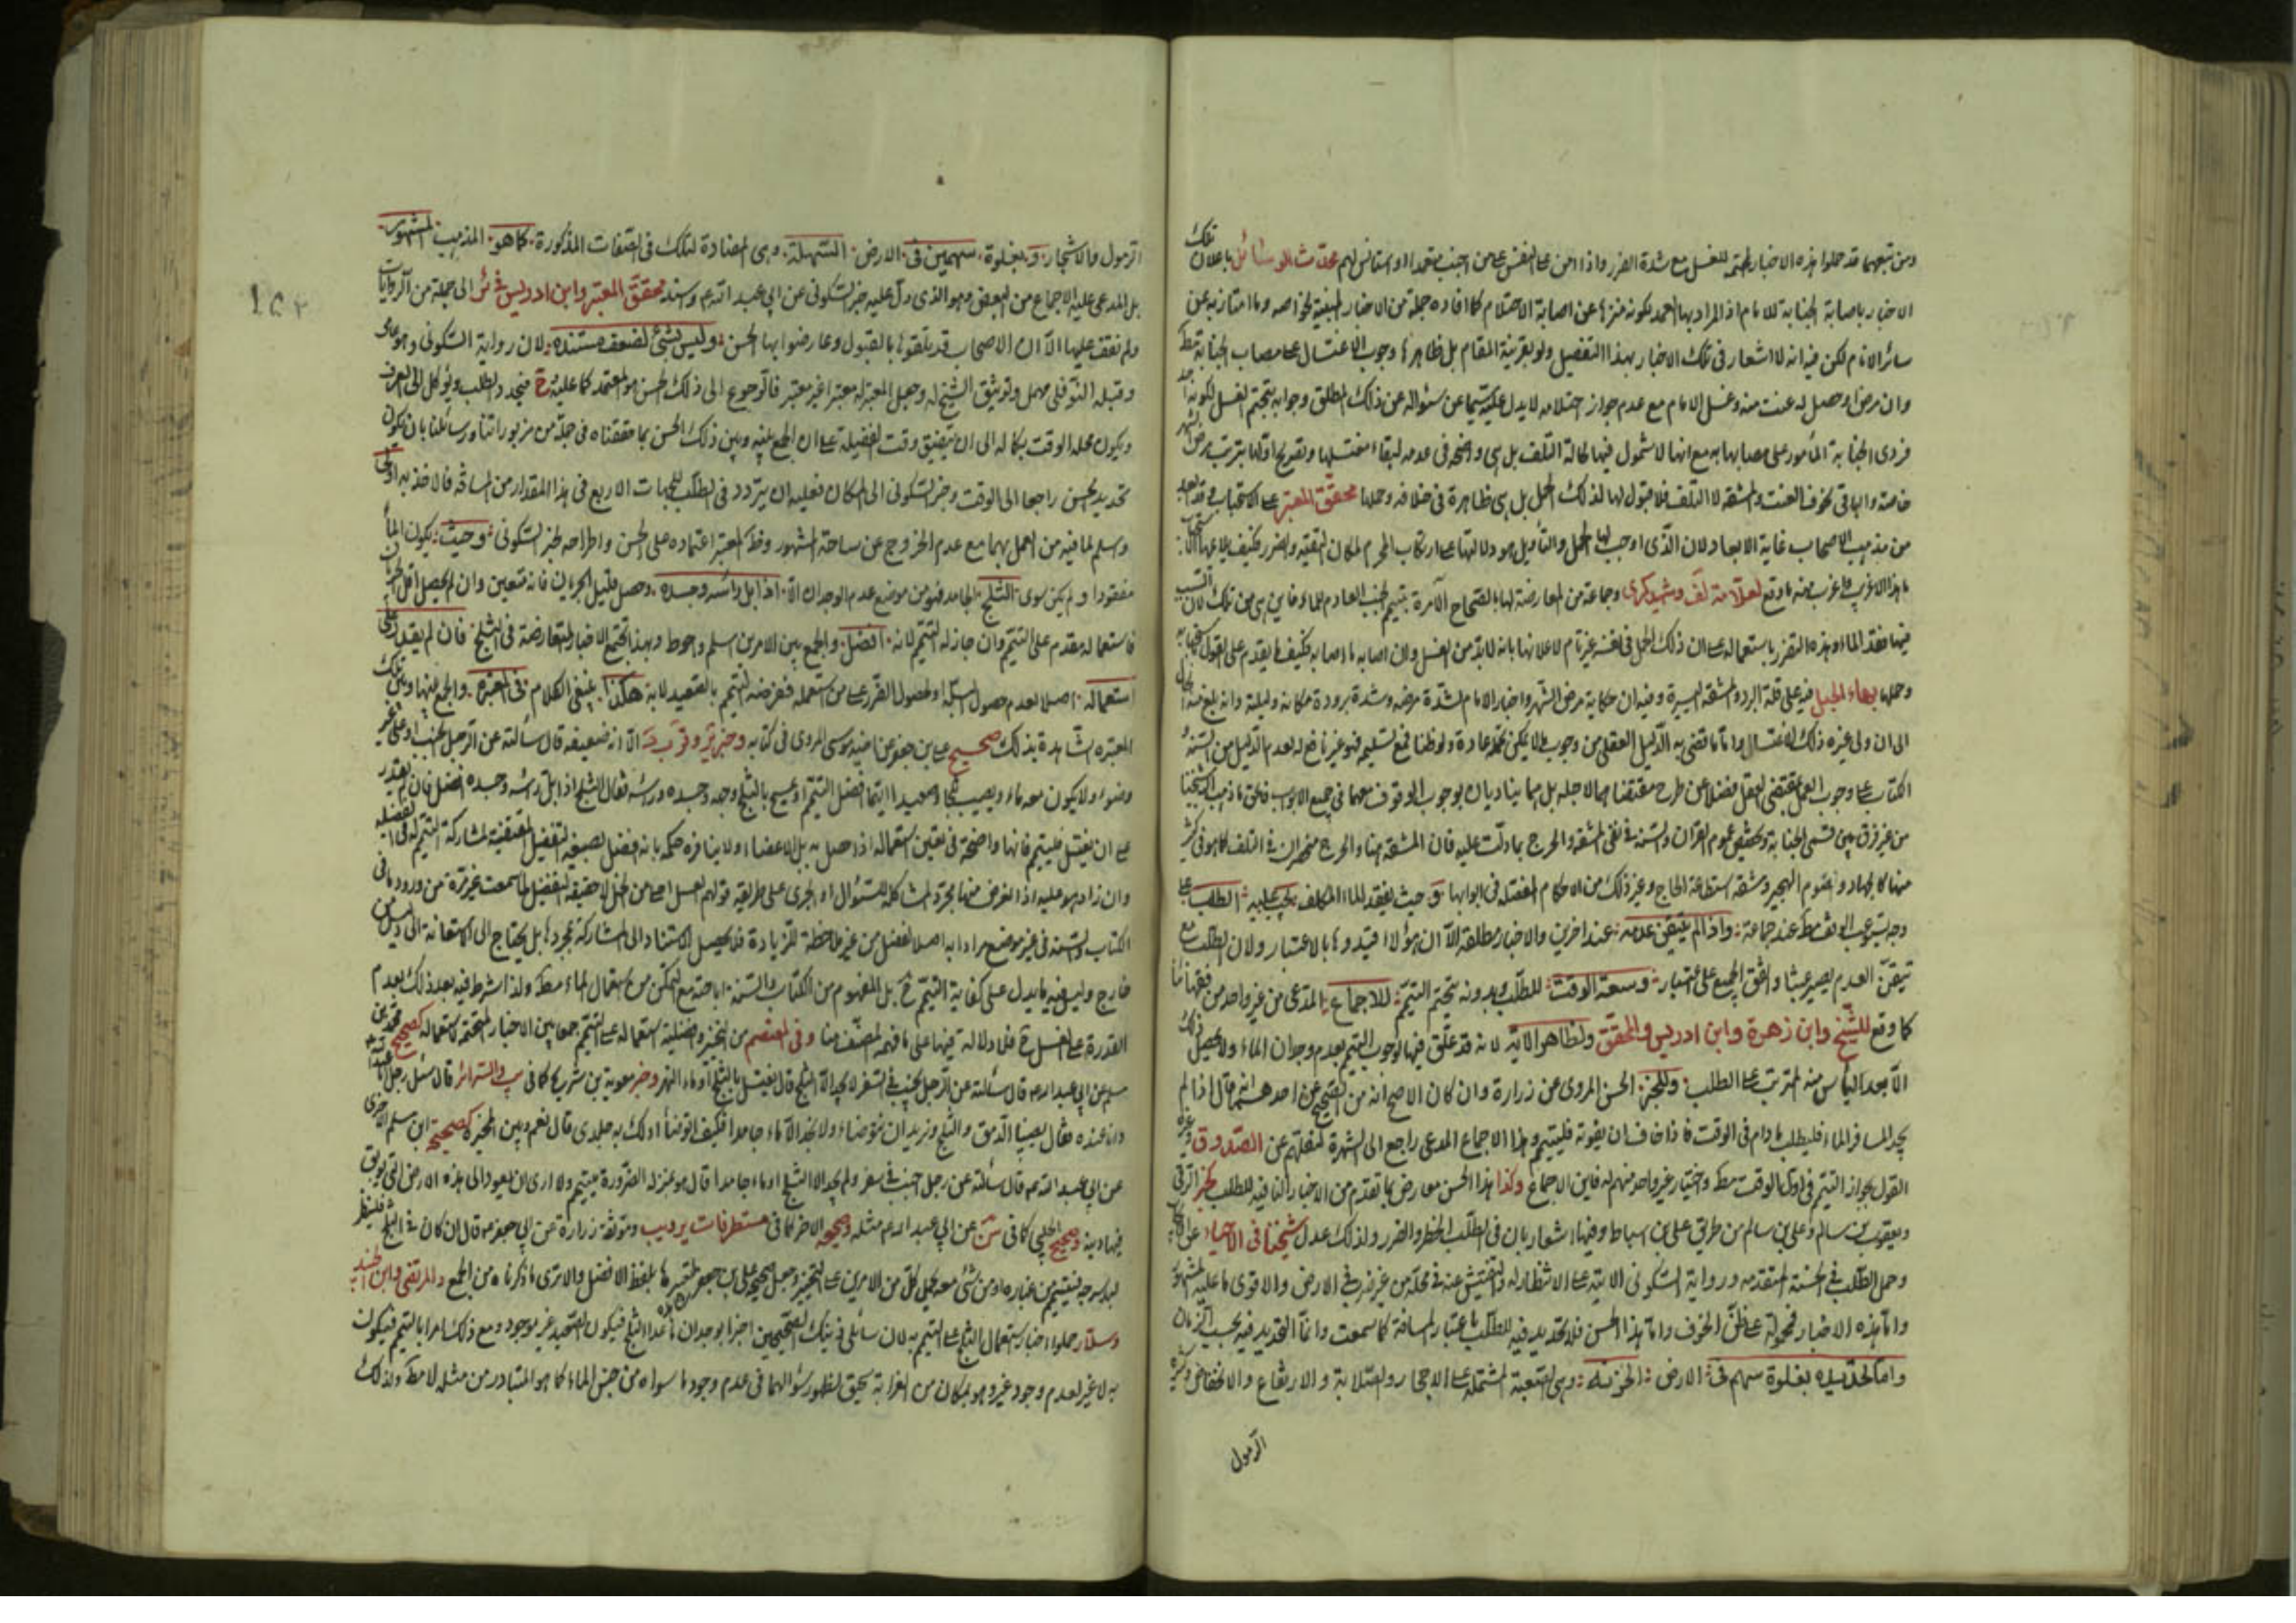 ومن تبعهما قد حملوا هذه الاخبار المحتمة للغسل مع شدة الضرر واذا امن على النفس على من اجنب متعمدا واستانس لهم محدث الوسائل باعلان تلك
الاخبار باصابة الجنابة للامام اذ المراد بها العمد لكونه منزها عن اصابة الاحتلام كما افاده جملة من الاخبار المبينة لخواصه وما امتاز به عن
سائر الانام لكن فيه انه لا اشعار في تلك الاخبار بهذا التفصيل ولو بقرينة المقام بل ظاهرها وجوب الاغتسال على مصاب الجنابة مط
وان مرض وحصل له عنت منه وغسل الامام مع عدم جواز احتلامه لا يدل عليه سيما عن سئواله عن ذلك المطلق وجوابه بتحتم الغسل لكونه احد
فردي الجنابة المأمور على مصابها به مع انها لا شمول فيها لحالة التلف بل هي واضحة في عدمه لبقاء مغتسلها
خاصة والباقي لخوف العنت والمشقة لا التلف فلا قبول لها لذلك الحمل بل هي ظاهرة في خلافه وحملها محقق المعتبر على الاستحباب
من مذهب الاصحاب غاية الابعاد لان الذي اوجب لها الحمل والتأويل هو دلالتها على ارتكاب المحرم لمكان التقية والضرر فكيف يلائمها
ما هذا الا غريب واغرب منه ما وقع لعلامة لف وشهيد كرى وجماعة من المعارضة لها بالصحاح الآمرة بتيمم الجنب العادم للماء فاين هي من تلك لان
فيها فقد الماء وهذه التضرر باستعماله على ان ذلك الحمل في نفسه غير تام لاعلانها بانه لابد من الغسل وان اصابه ما اصابه فكيف يقدم على القول
وحملها بهاء الحبل فيه على قلة البرد والمشقة اليسيرة وفيه ان حكاية مرض الشهر واخبار الامام لشدة مرضه وشدة برودة مكانه وليلته وانه بلغ منه
الى ان ولي غيره ذلك الاغتسال واما ما قضى به الدليل العقلي من وجوب ما لا يمكن تحمله عادة ولو ظنا فمع تسليمه فهو غير نافع له بعد الدليل من السنة و
الكتاب على وجوب العمل بمقتضى العقل فضلا عن طرح مقتضاهما لاجله بل هما يناديان بوجوب الوقوف معهما في جميع الابواب
من غير فرق بين قسمي الجنابة وتخصيص عموم القران والسنة في نفي المشقة والحرج بما دلت عليه فان المشقة هنا والحرج منحصران في التلف كما هو في كثير
منها كالجهاد والصوم الهجير ومشقة استطاعة الحاج وغير ذلك من الاحكام المفصلة في ابوابها وحيث يفقد الماء المكلف يجب عليه الطلب على
وجه يستوعب الوقت مط عند جماعة واذا لم يتيقن عدمه عند اخرين والاخبار مطلقة الا ان هؤلاء قيدوها بالاعتبار ولان الطلب مع
تيقن العدم يصير عبثا واتفق الجميع على اعتبار وسعة الوقت للطلب وبدونه يتحتم التيمم للاجماع المدعى من غير واحد من فقهائنا
كما وقع للشيخ وابن زهرة وابن ادريس والمحقق ولظاهر الاية لانه قد علق فيها لوجوب التيمم بعدم وجدان الماء ولا يحصل ذلك
الا بعد الياس منه المترتب على الطلب وللخبر الحسن المروى عن زرارة وان كان الاصح انه من الصحيح عن احدهما قال اذا لم
يجد المسافر الماء فليطلب ما دام في الوقت فاذا خاف ان يفوته فليتيمم وهذا الاجماع المدعى راجع الى الشهرة لنقلهم عن الصدوق وغيره
القول بجواز التيمم في اول الوقت مط واختيار غير واحد منهم له فاين الاجماع وكذا هذا الحسن معارض بما تقدم من الاخبار النافية للطلب كخبر الرقي
ويعقوب بن سالم وعلي بن سالم من طريق علي بن اسباط وفيها اشعار بان في الطلب الخطر والضرر ولذلك عدل شيخنا في الاحياء
وحمل الطلب في الحسنة المتقدمة ورواية السكوني الاتية على الانتظار له والتفتيش عنه في محله من غير ضرب في الارض والاقوى ما عليه المشهور
واما هذه الاخبار فمحمولة على ظن الخوف واما هذا الحسن فلا تحديد فيه للطلب باعتبار المسافة كما سمعت وانما التحديد فيه بحسب الزمان
واما تحديده بغلوة سهم في الارض الحزنة وهي الصعبة المشتملة على الاحجار والصلابة والارتفاع والانخفاض وكثرة
الرمول
الرمول والاشجار وبغلوة سهمين في الارض السهلة وهى المضادة لتلك في الصفات المذكورة كما هو المذهب المشهور
بل المدعى عليه الاجماع من البعض وهو الذى دل عليه خبر السكونى عن ابي عبد الله ع وسنده محقق المعتبر وابن ادريس في ئر الى جملة من الروايات
ولم نقف عليها الا ان الاصحاب قد تلقوها بالقبول وعارضوا بها الحسن وليس بشئ لضعف مستنده لان رواية السكونى وهو عامى
وقبله النوفلى مهمل وتوثيق الشيخ له وجعل المعتبر له معتبرا غير معتبر فالرجوع الى ذلك الحسن هو المعتمد كما عليه فيتحدد الطلب ويوكل الى العرف
ويكون محله الوقت بكماله الى ان يتضيق وقت الفضيلة على ان الجمع بينه وبين ذلك الحسن بما حققناه في جملة من مزبوراتنا ورسائلنا بان يكون
تحديد الحسن راجعا الى الوقت وخبر السكونى الى المكان فعليه ان يتردد في الطلب للجهات الاربع في هذا المقدار من المسافة فالاخذ به اولى
واسلم لما فيه من العمل بهما مع عدم الخروج عن ساحة المشهور وظ المعتبر اعتماده على الحسن واطراحه لخبر السكونى وحيث يكون الماء
مفقودا ولم يكن سوى الثلج الجامد فهو من موضع عدم الوجدان الا اذا ابل راسه وجسده وحصل قليل الجريان فانه متعين وان لم يحصل اقل الجريان
فاستعماله مقدم على التيمم وان جاز له التيمم لانه افضل والجمع بين الامرين اسلم واحوط وبهذا تجتمع الاخبار المتعارضة في الثلج فان لم يقدر على
استعماله اصلا لعدم حصول البلة او لحصول الضرر على من استعمله ففرضه التيمم بالصعيد لانه هكذا ينبغي الكلام في المعتبرة والجمع بينها وبين تلك
المعتبره الشاهدة بذلك صحيح على بن جعفر عن اخيه موسى المروى في كتابه وخبر ئر وقرب سة الا انه ضعيفه قال سألته عن الرجل الجنب او على غير
وضوء ولا يكون معه ماء ويصيب ثلجا وصعيدا ايهما افضل التيمم او يمسح بالثلج وجهه وجسده وراسه فقال الثلج اذا ابل راسه وجسده افضل فان لم يقدر
على ان يغتسل فليتيمم فانها واضحة في تعيين استعماله اذا حصل به بل الاعضاء ولا ينافره حكمه بانه افضل بصيغة التفضيل المقتضية لمشاركة التيمم له في الفضيلة
وان زاد هو عليه اذ الغرض منها مجرد المشاكلة للسئوال او الجرى على طريقة قولهم العسل احلى من الخل لا حقيقة التفضيل لما سمعت غير مرة من ورودها في
الكتاب والسنة في غير موضع مرادا به اصل الفضل من غير ملاحظة للزيادة فلا يحصل الاستناد الى المشاركة بمجردها بل يحتاج الى الاستعانة الى دليل من
خارج وليس فيه ما يدل على كفاية التيمم ح بل المفهوم من الكتاب والسنة اباحته مع التمكن من استعمال الماء مط ولذا اشرط فيه بعد ذلك بعدم
القدرة على الغسل ح فلا دلالة فيها على ما فهمه المصنف هنا وفي المعتصم من التخيير وافضلية استعماله على التيمم جمعا بين الاخبار المحتمة لاستعماله كصحيح محمد بن
مسلم عن ابي عبد الله ع قال سألته عن الرجل يجنب في السفر لا يجد الا الثلج قال يغتسل بالثلج او ماء النهر وخبر معوية بن شريح كما في يب والسرائر قال سئل رجل ابا عبد الله
وانا عنده فقال يصيبنا الدمق والثلج ونريد ان نتوضاء ولا نجد الا ماء جامدا فكيف اتوضأ ادلك به جلدى قال نعم وبين المخبرة كصحيحة ابن مسلم الاخرى
عن ابي عبد الله ع قال سألته عن رجل اجنب في سفر ولم يجد الا الثلج او ماء جامدا قال هو بمنزلة الضرورة يتيمم ولا ارى ان يعود الى هذه الارض التي يوبق
فيها دينه وصحيح الحلبى كما في سن عن ابي عبد الله ع مثله وصحيحه الاخر كما في مستطرفات ير ديب وموثقة زرارة عن ابي جعفر ع قال ان كان في الثلج فلينظر
لبد سرجه فيتيمم من غباره او من شئ معه
وسلار حملوا اخبار استعمال الثلج على التيمم به لان سائلي تينك الصحيحين اخبرا بوجدان ما عدا الثلج فيكون الصعيد غير موجود ومع ذلك امرا بالتيمم فيكون
به لا غير لعدم وجود غيره وهو بمكان من الغرابة سحيق لظهور سئوالهما في عدم وجود ما سواه من جنس الماء كما هو المتبادر من مثله لا مط ولذلك